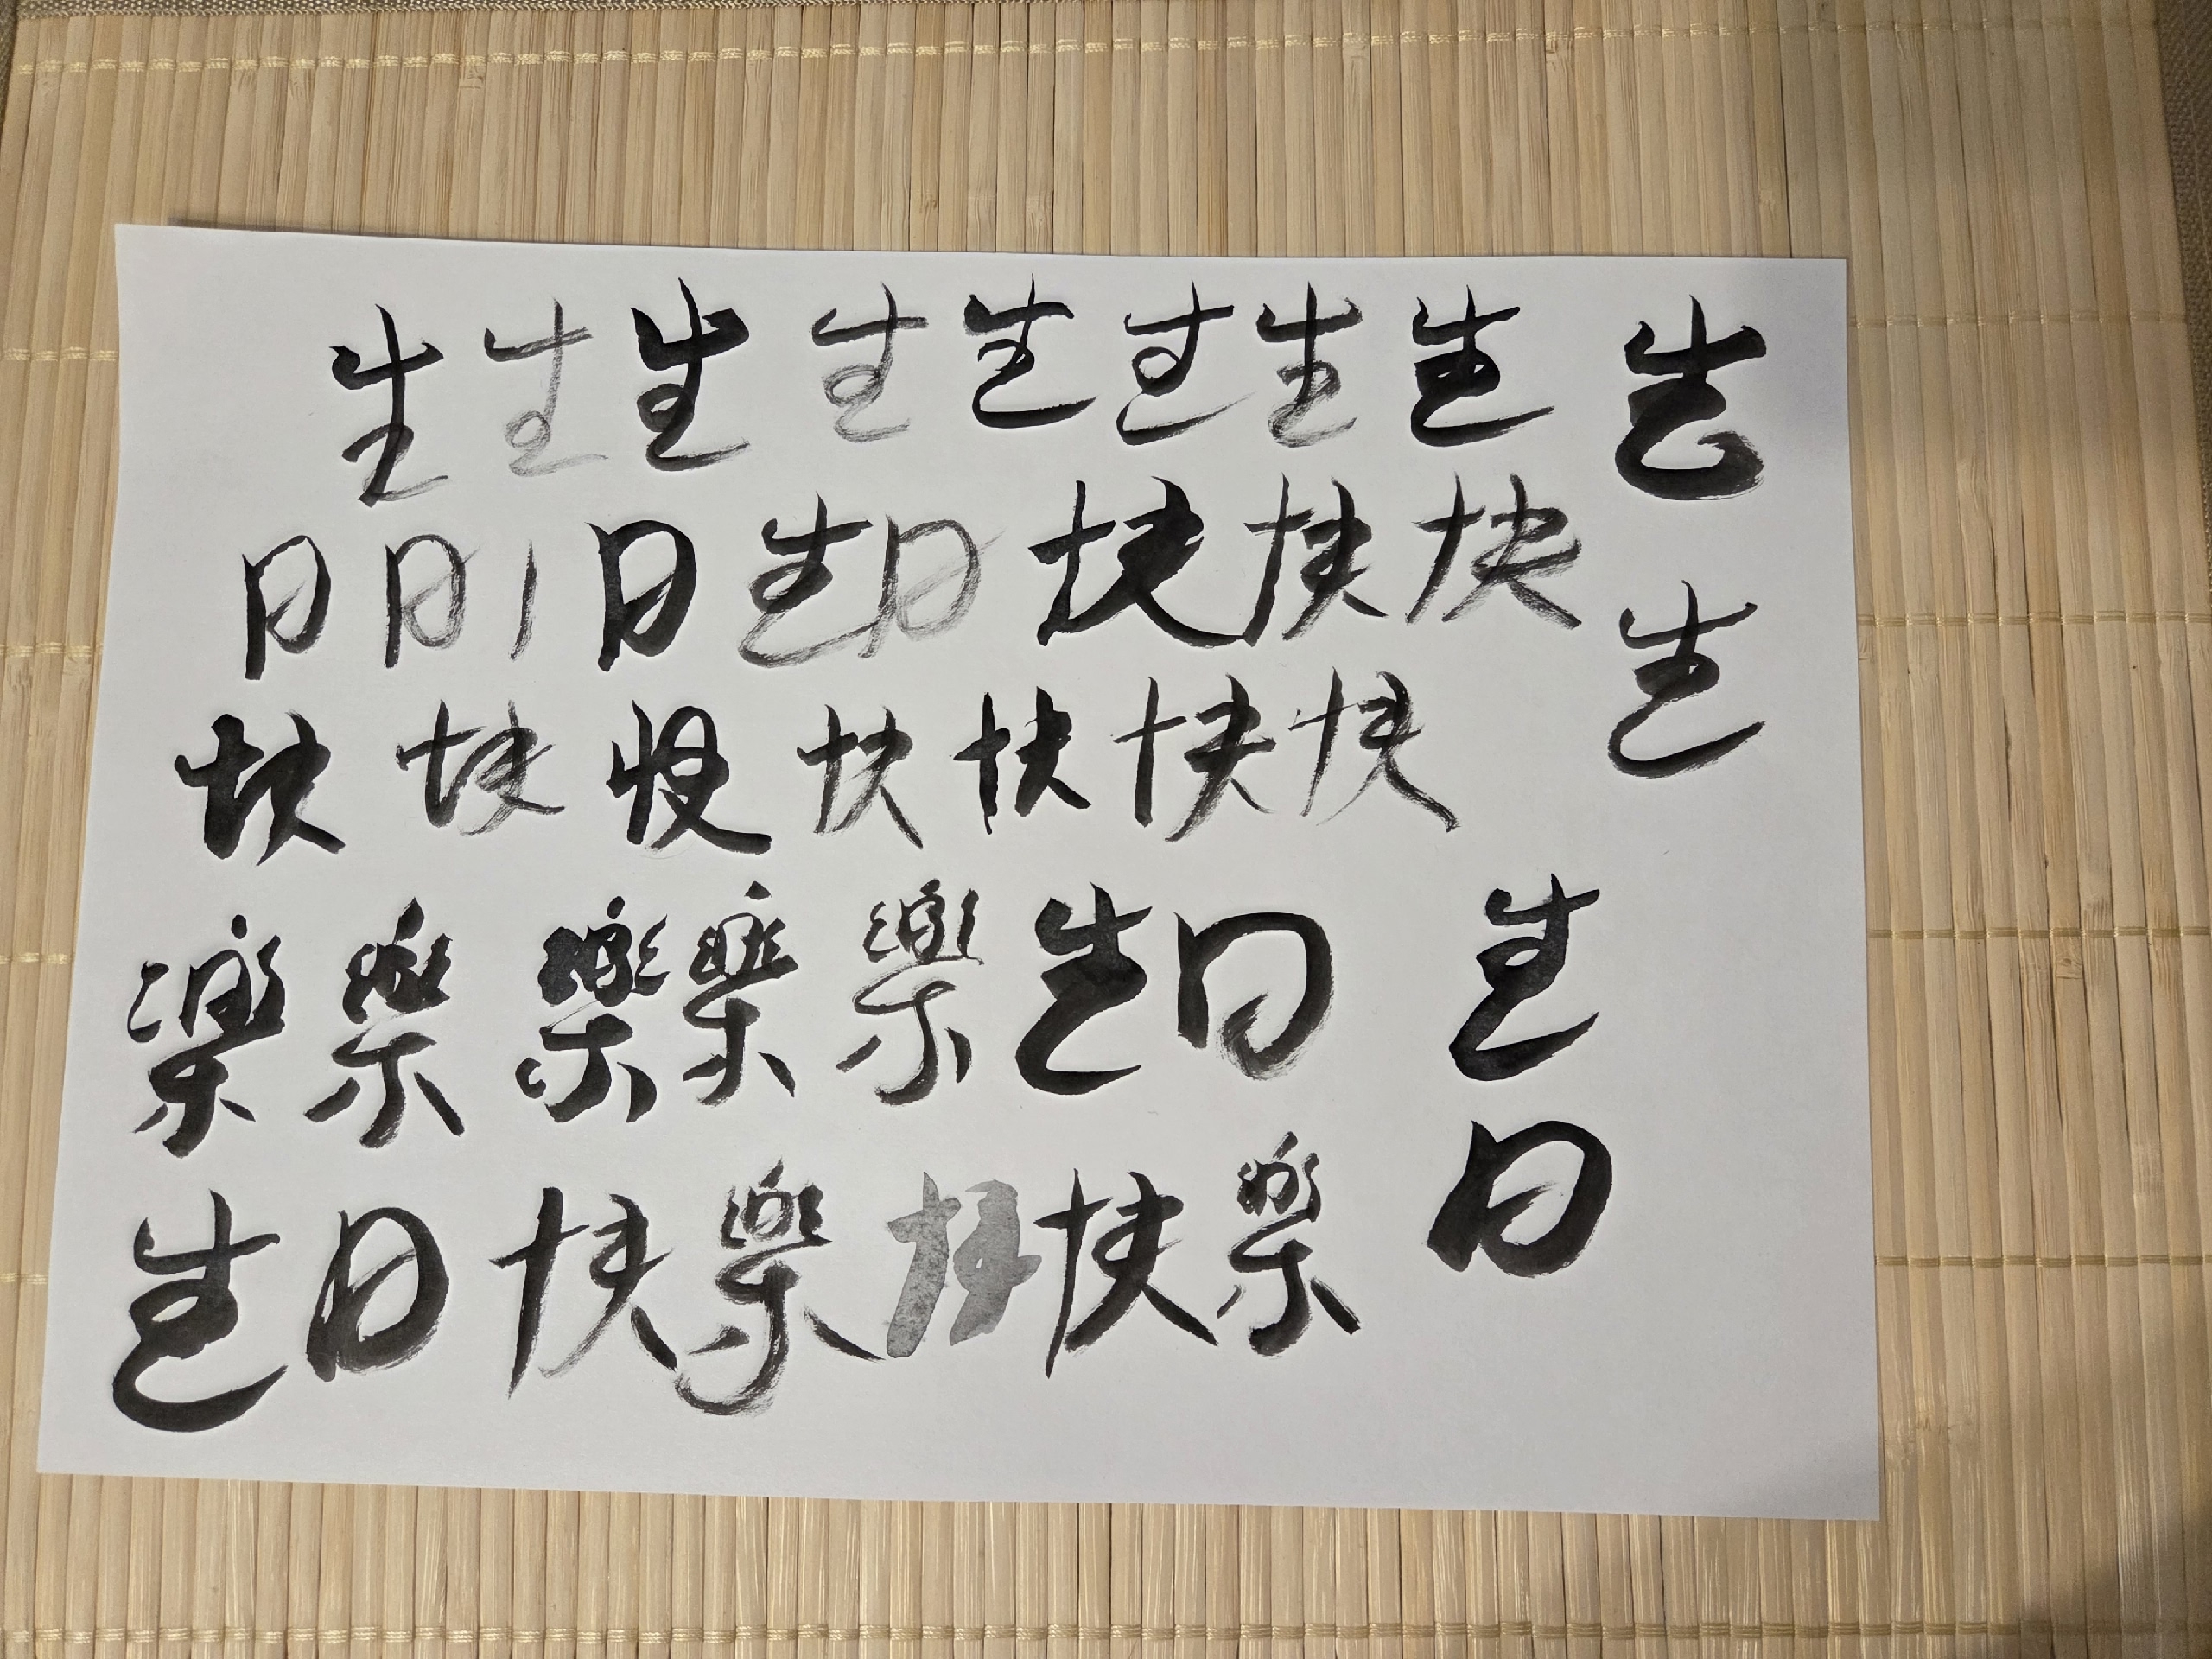 生生生生生生生生生
日日日生日快快快生
快快快快快快快
樂樂樂樂樂生日生
生日快樂快樂日